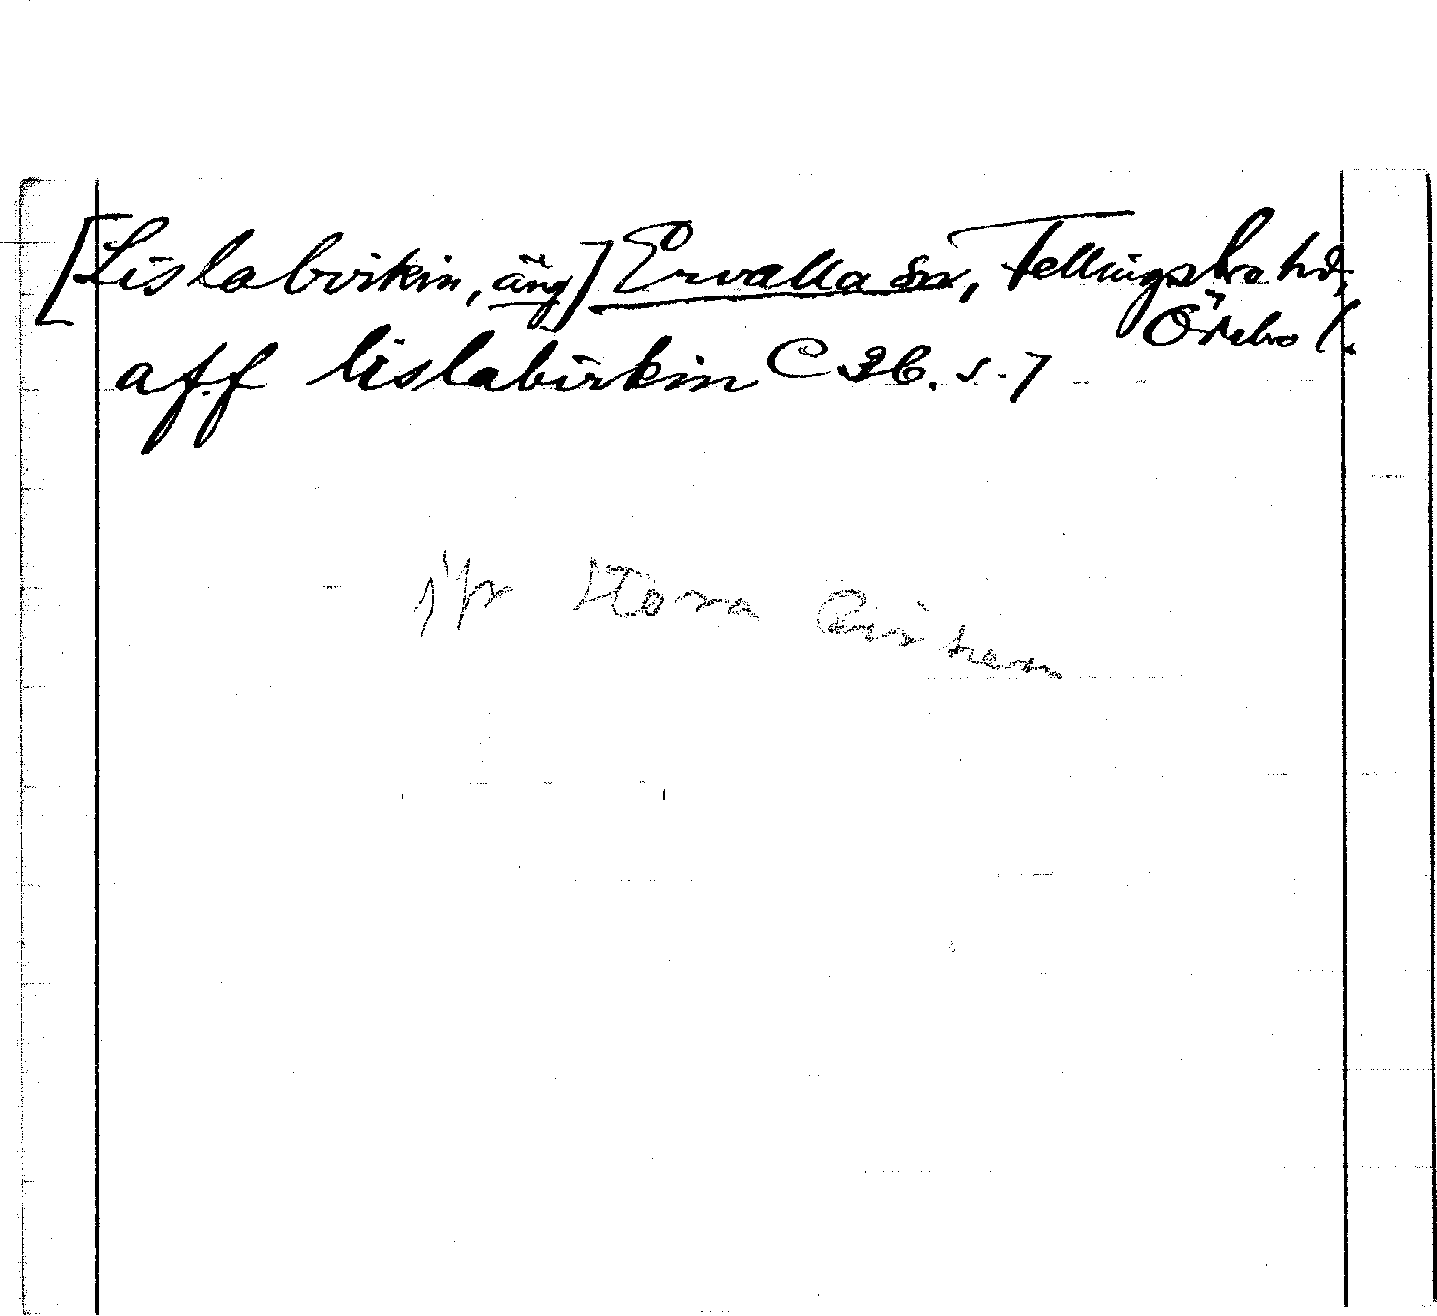 [Lislabirkin, äng] Ervalla sn, Fellingsbro hd,
Örebro l.
aff lislabirkin C 36. s. 7
jfr Stora